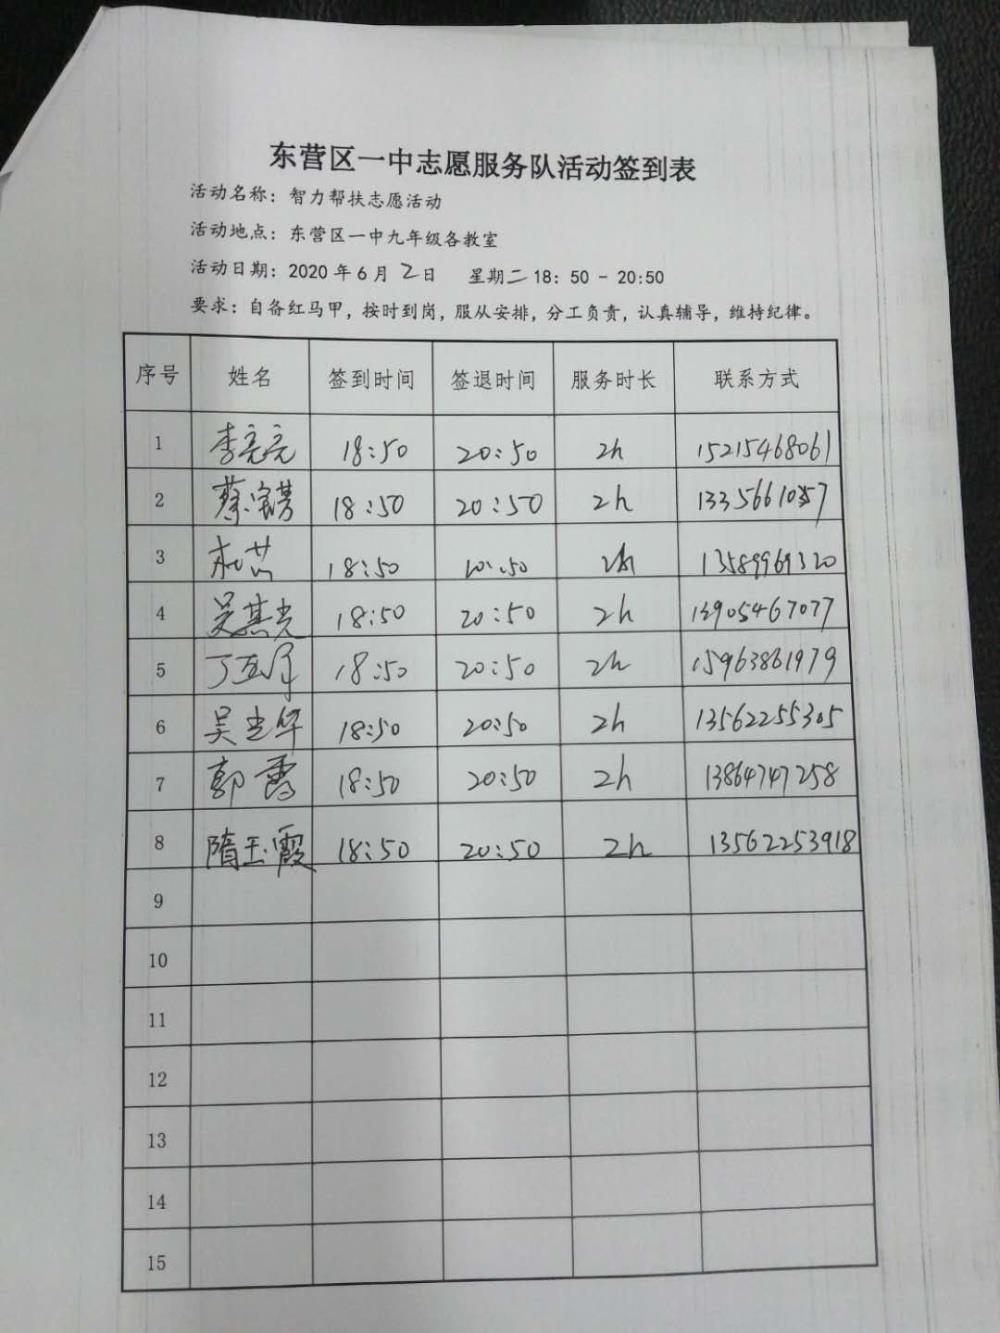 东营区一中志愿服务队活动签到表
活动名称：智力帮扶志愿活动
活动地点：东营区一中九年级各教室
活动日期：2020 年 6 月 2 日 星期二 18：50 - 20:50
要求：自备红马甲，按时到岗，服从安排，分工负责，认真辅导，维持纪律。
序号 姓名 签到时间 签退时间 服务时长 联系方式
1 李亮亮 18:50 20:50 2h 15215468061
2 18:50 20:50 2h
3 18:50 20:50 2h 13589969320
4 18:50 20:50 2h 13905467077
5 18:50 20:50 2h 15963861979
6 吴光华 18:50 20:50 2h 13562255305
7 郭霞 18:50 20:50 2h 13864747258
8 隋玉霞 18:50 20:50 2h 13562253918
9
10
11
12
13
14
15